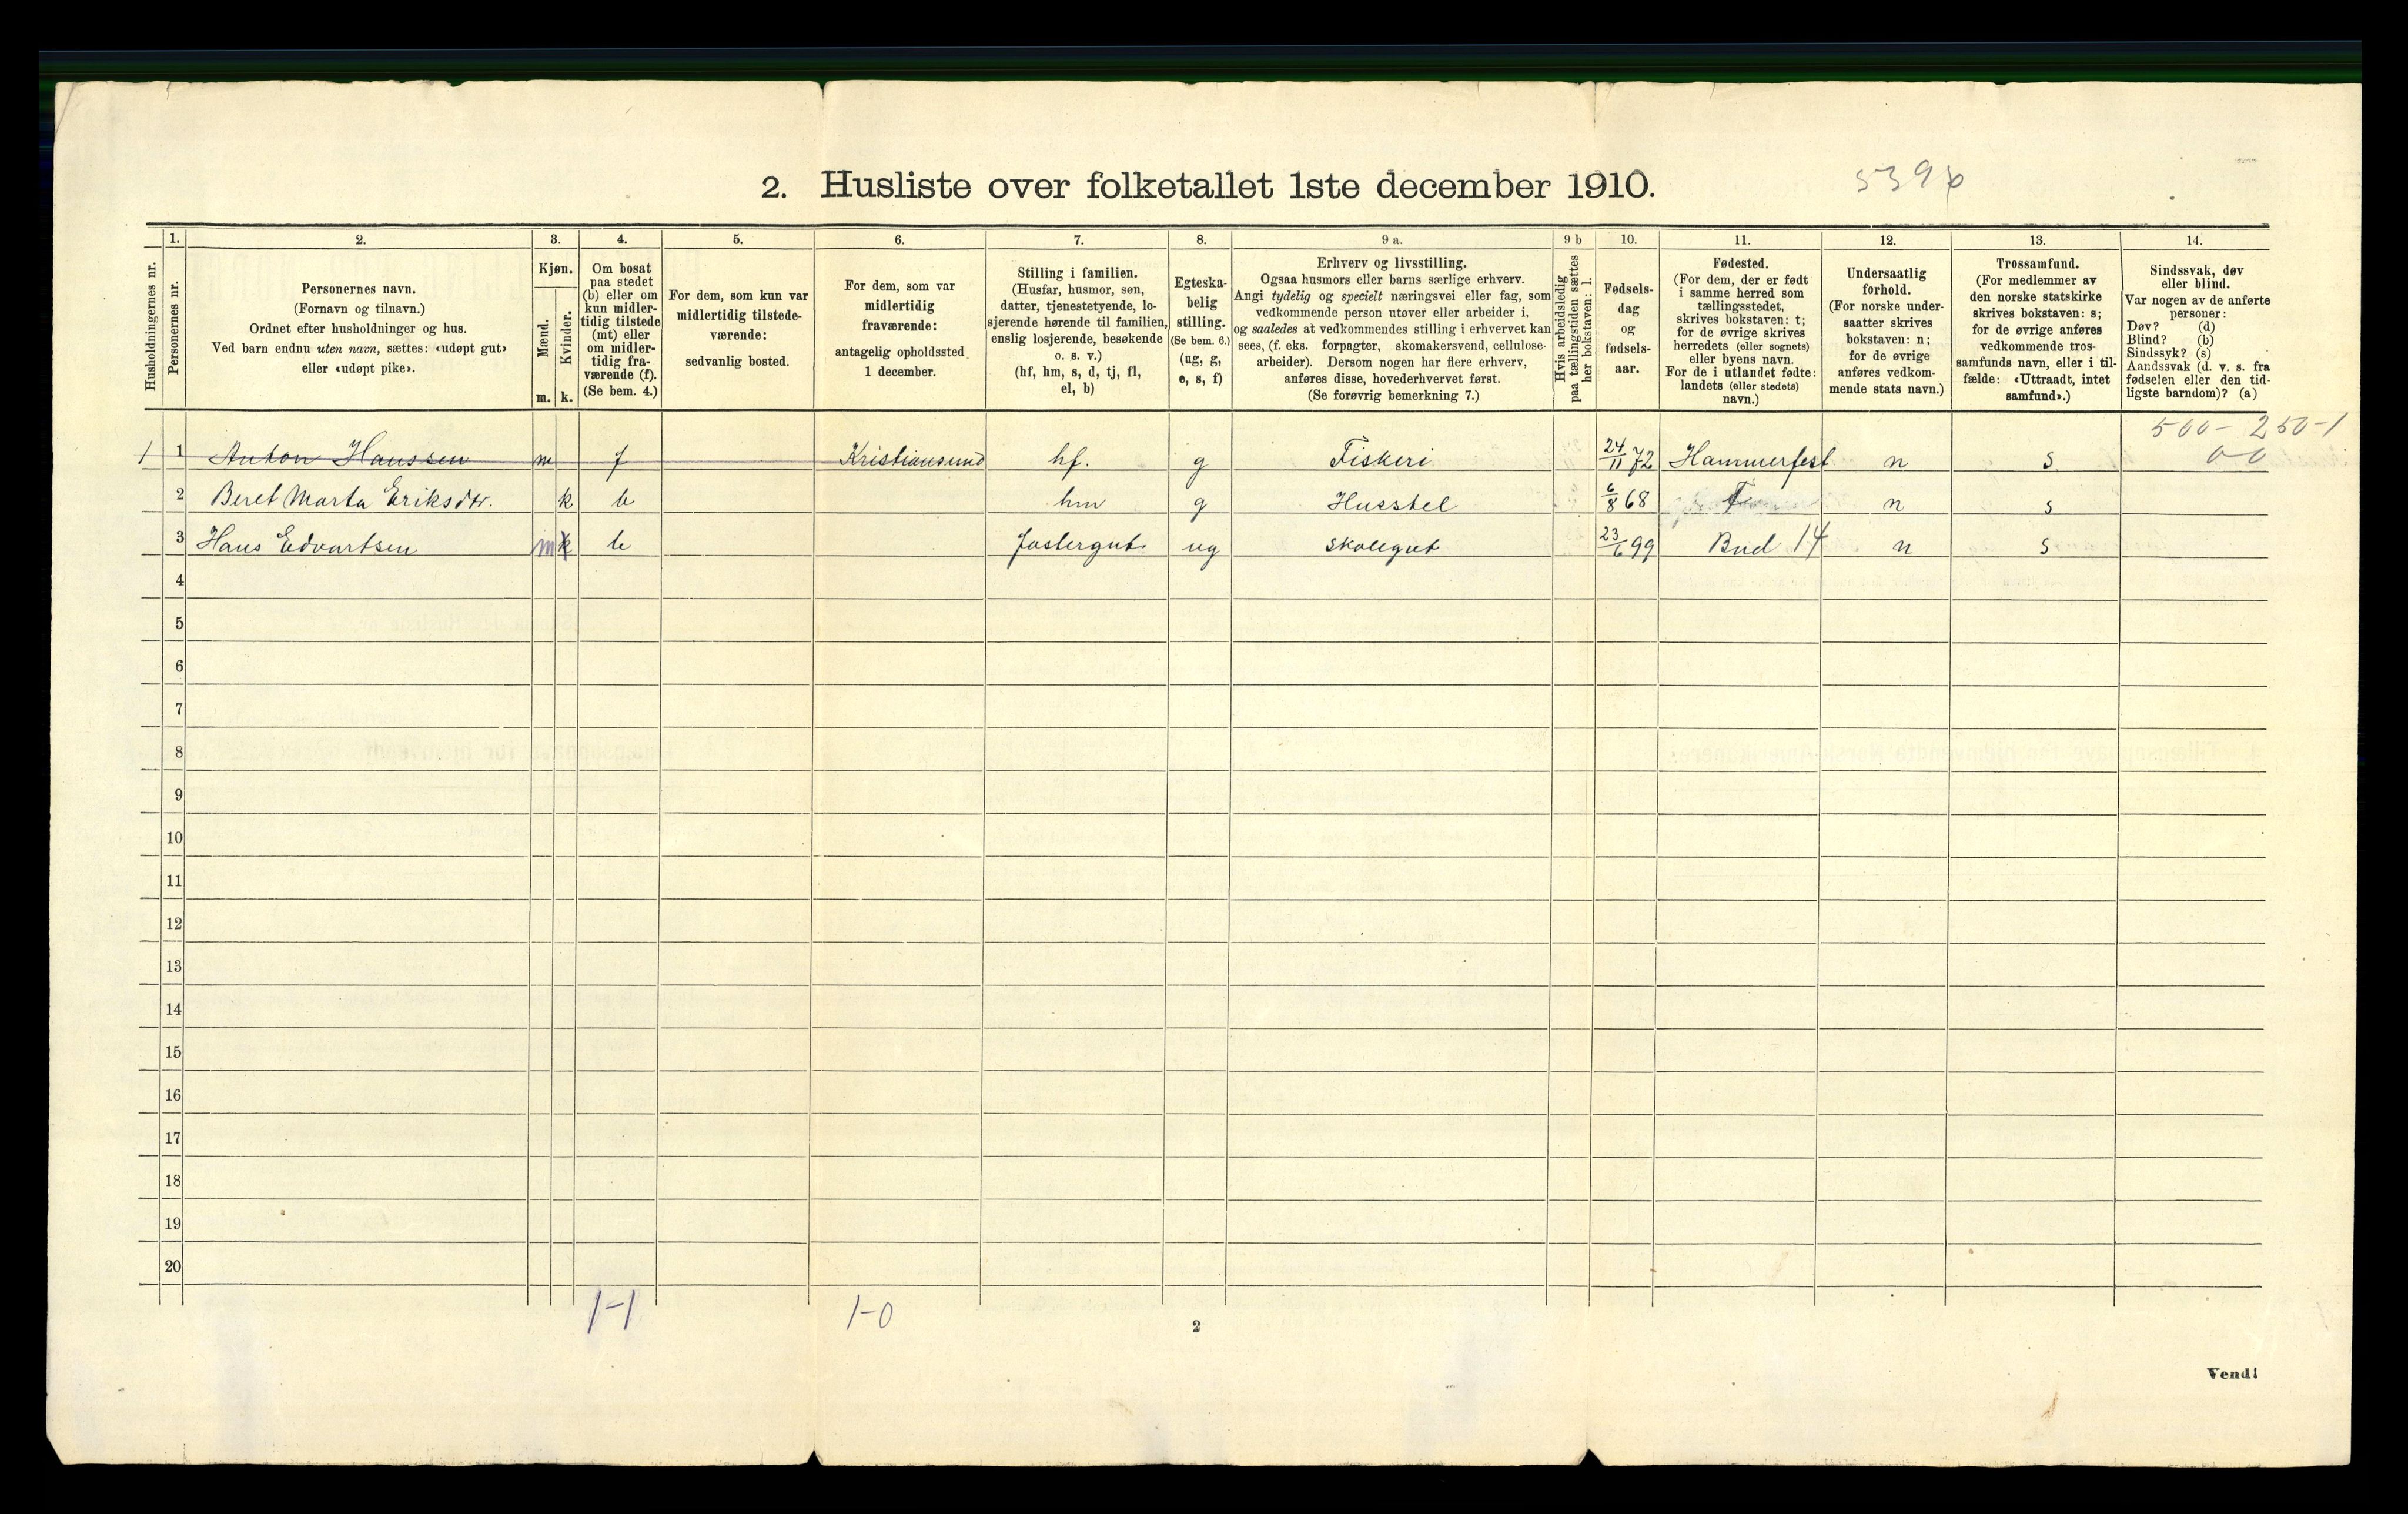 2. Husliste over folketallet 1ste december 1910.
5396
1. 2. 3. 4. 5. 6. 7. 8. 9 a. 9 b 10. 11. 12. 13. 14.
Husholdningernes nr.
Personernes nr.
Personernes navn.
(Fornavn og tilnavn.)
Ordnet efter husholdninger og hus.
Ved barn endnu uten navn, sættes: «udøpt gut»
eller «udøpt pike».
Kjøn.
Mænd.
Kvinder.
m. k.
Om bosat
paa stedet
(b) eller om
kun midler-
tidig tilstede
(mt) eller
om midler-
tidig fra-
værende (f).
(Se bem. 4.)
For dem, som kun var
midlertidig tilstede-
værende:
sedvanlig bosted.
For dem, som var
midlertidig
fraværende:
antagelig opholdssted
1 december.
Stilling i familien.
(Husfar, husmor, søn,
datter, tjenestetyende, lo-
sjerende hørende til familien,
enslig losjerende, besøkende
o. s. v.)
(hf, hm, s, d, tj, fl,
el, b)
Egteska-
belig
stilling.
(Se bem. 6.)
(ug, g,
e, s, f)
Erhverv og livsstilling.
Ogsaa husmors eller barns særlige erhverv.
Angi tydelig og specielt næringsvei eller fag, som
vedkommende person utøver eller arbeider i,
og saaledes at vedkommendes stilling i erhvervet kan
sees, (f. eks. forpagter, skomakersvend, cellulose-
arbeider). Dersom nogen har flere erhverv,
anføres disse, hovederhvervet først.
(Se forøvrig bemerkning 7.)
Hvis arbeidsledig
paa tællingstiden sættes
her bokstaven: l.
Fødsels-
dag
og
fødsels-
aar.
Fødested.
(For dem, der er født
i samme herred som
tællingsstedet,
skrives bokstaven: t;
for de øvrige skrives
herredets (eller sognets)
eller byens navn.
For de i utlandet fødte:
landets (eller stedets)
navn.)
Undersaatlig
forhold.
(For norske under-
saatter skrives
bokstaven: n;
for de øvrige
anføres vedkom-
mende stats navn.)
Trossamfund.
(For medlemmer av
den norske statskirke
skrives bokstaven: s;
for de øvrige anføres
vedkommende tros-
samfunds navn, eller i til-
fælde: «Uttraadt, intet
samfund».)
Sindssvak, døv
eller blind.
Var nogen av de anførte
personer:
Døv? (d)
Blind? (b)
Sindssyk? (s)
Aandssvak (d. v. s. fra
fødselen eller den tid-
ligste barndom)? (a)
500-250-1
00
1 1 Anton Hanssen m f Kristiansund hf. g Fiskeri 24/11 72 Hammerfest n s
2 Beret Marta Eriksdtr. k b hm g Husstel 6/8 68 T n s
3 Hans Edvartsen m k b fostergut ug skolegut 23/6 99 Bud 14 n s
4
5
6
7
8
9
10
11
12
13
14
15
16
17
18
19
20
1-1 1-0
2
Vend!